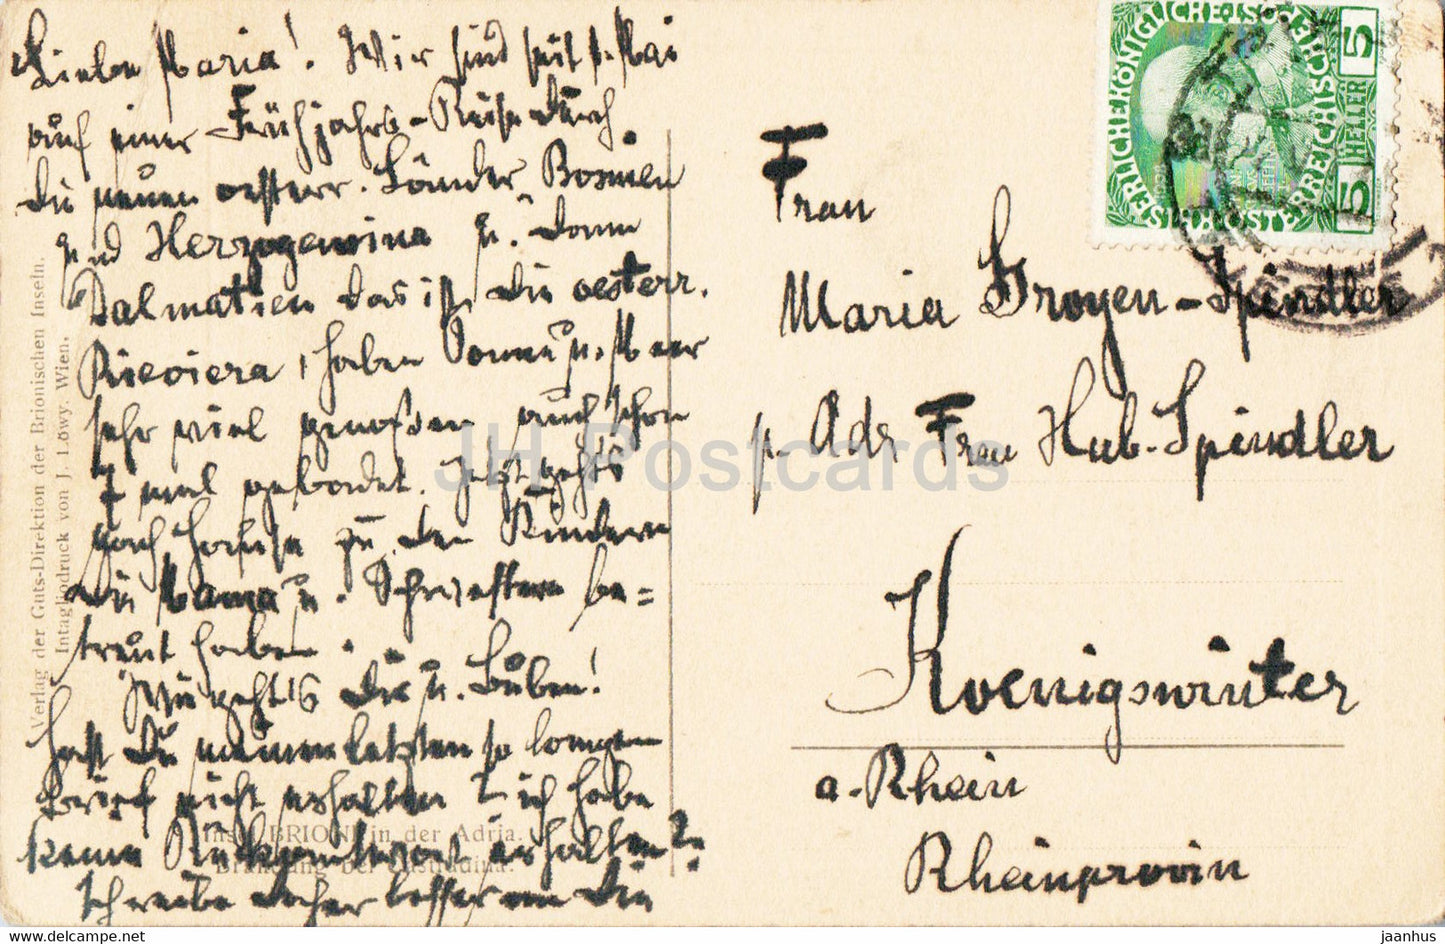 Liebe Maria! Wir sind seit 1. Mai
auf einer Frühjahrs-Reise durch
die neuen oesterr. Länder, Bosnien
und Herzogewina u. dann
Dalmatien das ist die oesterr.
Rieviera, haben Sonne u. Meer
sehr viel genossen auch schon
7 mal gebadet. Jetzt gehts
nach Hause zu den Kindern
die Mama u. Schwestern be=
treut haben.
Wie geht's Dir u. Buben!
Hast Du meinen letzten so langen
Brief nicht erhalten? ich habe
keine Rückantwort erhalten?
Schreibe daher besser an die
Verlag der Guts-Direktion der Brionischen Inseln.
Intagliodruck von J. Löwy. Wien.
Insel BRIONI in der Adria.
Brandung bei
KAISERLICHE KÖNIGLICHE ÖSTERREICHISCHE
5 HELLER 5
Frau
Maria Groyen-Spindler
p. Adr Frau Hub. Spindler
Koenigswinter
a. Rhein
Rheinprovin
JH Postcards
www.delcampe.net
jaanhus